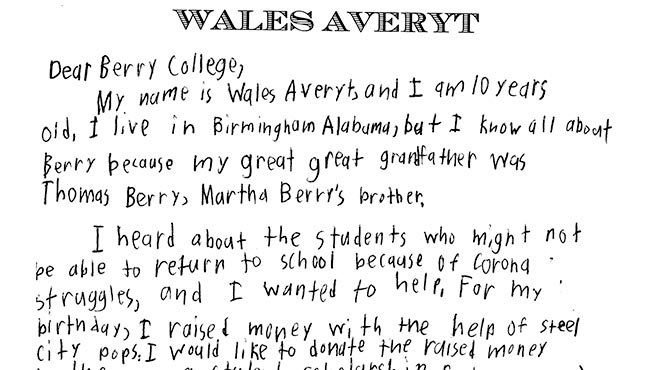 WALES AVERYT
Dear Berry College,
My name is Wales Averyt, and I am 10 years
old, I live in Birmingham Alabama, but I know all about
Berry because my great great grandfather was
Thomas Berry, Martha Berry's brother.
I heard about the students who might not
be able to return to school because of Corona
struggles, and I wanted to help. For my
birthday, I raised money with the help of steel
City pops. I would like to donate the raised money